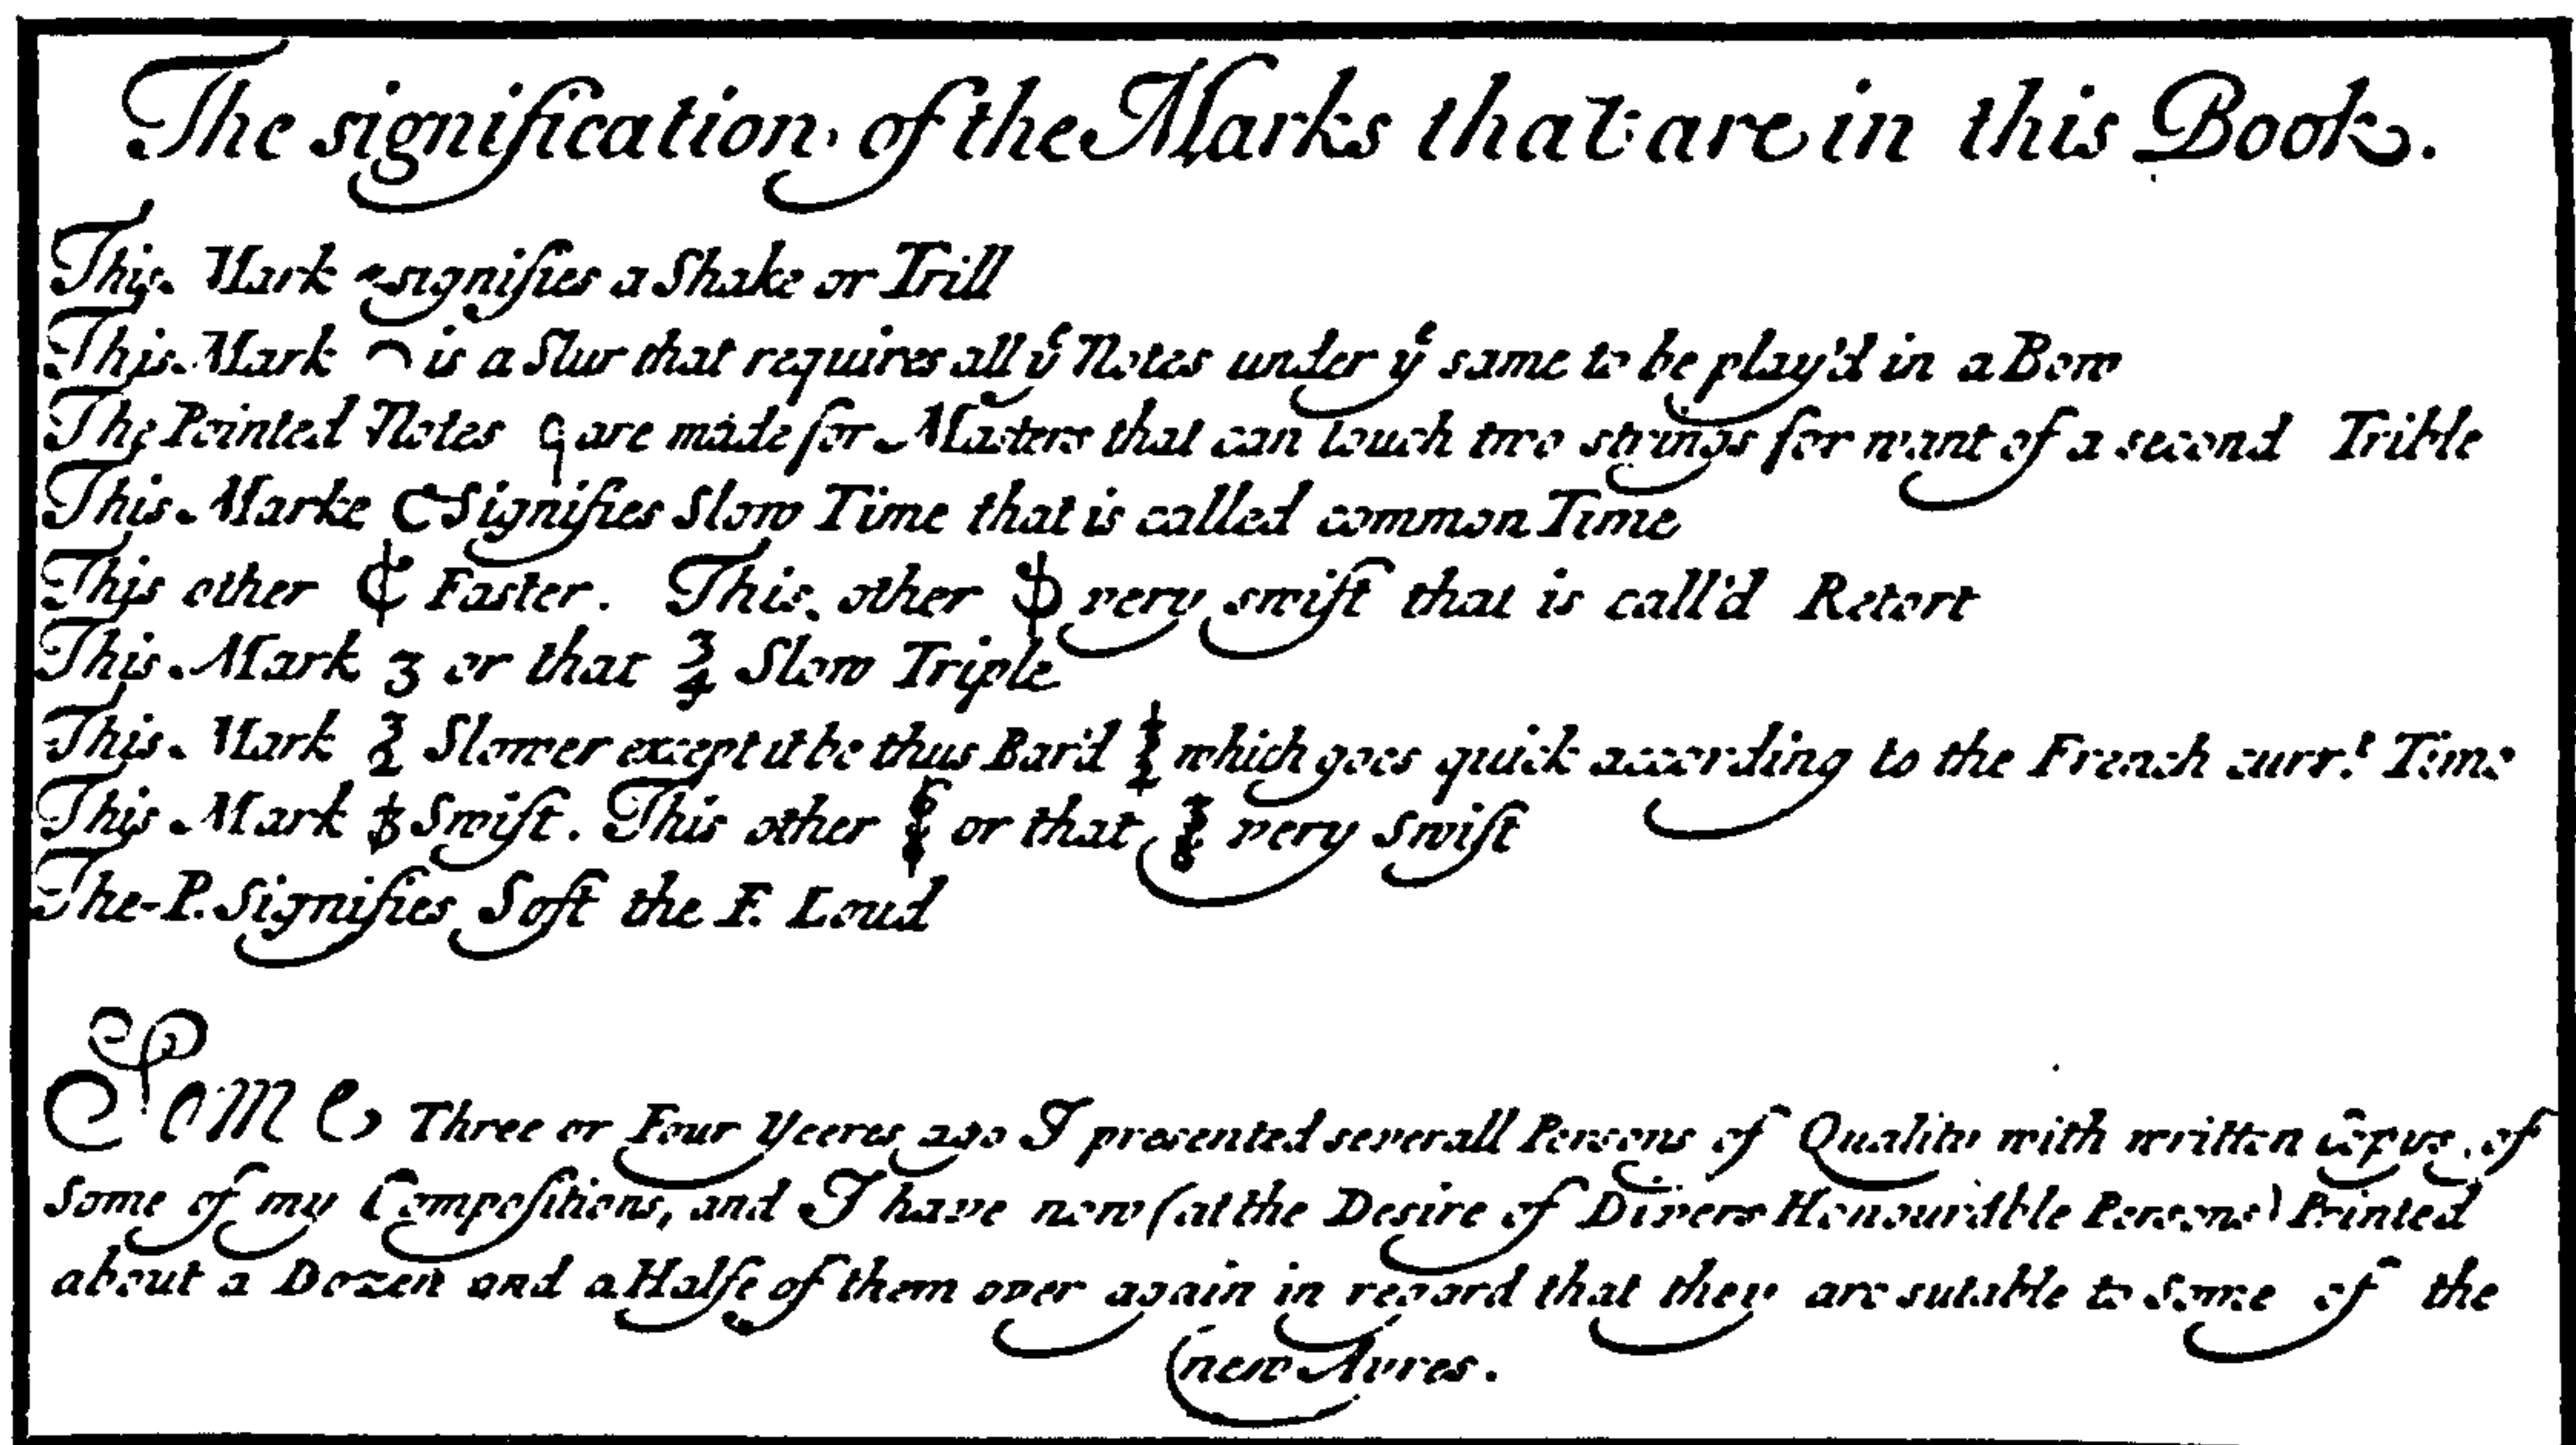 The signification of the Marks that are in this Book.
This Mark signifies a Shake or Trill
This Mark ⌒ is a Slur that requires all yͤ Notes under yͤ same to be play'd in a Bow
The Pointed Notes are made for Masters that can touch two strings for want of a second Trible
This Marke C Signifies Slow Time that is called common Time
This other ₵ Faster. This other very swift that is call'd Retort
This Mark 3 or that 3/4 Slow Triple
This Mark 3/2 Slower except it be thus Bar'd which goes quick according to the French curr.ᵗ Time
This Mark Swift. This other or that very Swift
The P. Signifies Soft the F. Loud
Some Three or Four Yeeres ago I presented severall Persons of Quality with written Copys of
Some of my Compositions, and I have now (at the Desire of Divers Honourable Persons) Printed
about a Dozen and a Halfe of them over again in regard that they are sutable to Some of the
(new Ayres.